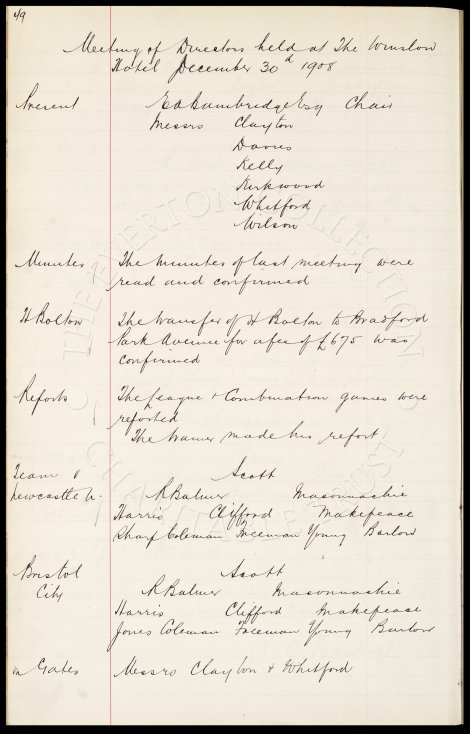 49
Meeting of Directors held at The Winslow
Hotel December 30d 1908
Present E A Bainbridge Esq Chair
Messrs Clayton
Davies
Kelly
Kirkwood
Whitford
Wilson
Minutes The minutes of last meeting were
read and confirmed
H Bolton The transfer of H Bolton to Bradford
Park Avenue for a fee of £675 was
confirmed
Reports The League & Combination games were
reported
The trainer made his report
Team v Scott
Newcastle U. R Balmer Maconnachie
Harris Clifford Makepeace
Sharp Coleman Freeman Young Barlow
Bristol Scott
City R Balmer Maconnachie
Harris Clifford Makepeace
Jones Coleman Freeman Young Barlow
Gates Messrs Clayton & Whitford
THE EVERTON COLLECTION
CHARITABLE TRUST